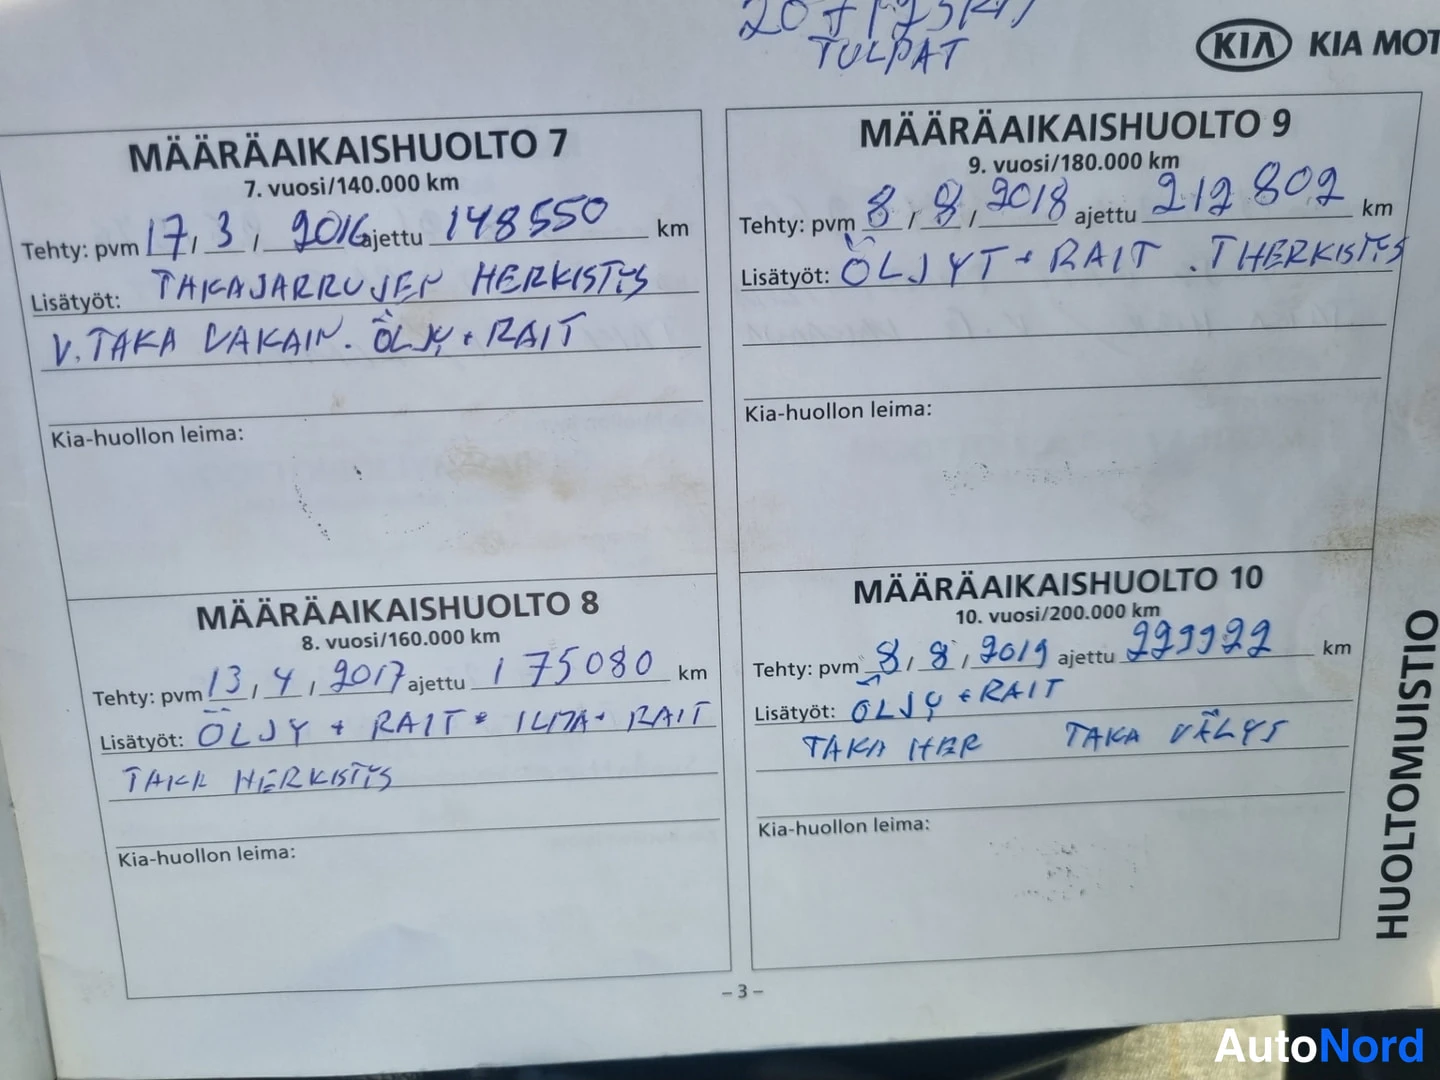 TULPAT
KIA KIA MOT
MÄÄRÄAIKAISHUOLTO 7
7. vuosi/140.000 km
Tehty: pvm 17, 3, 2016 ajettu 148550 km
Lisätyöt: TAKAJARRUJEN HERKISTYS
V. TAKA VAKAIN. ÖLJY + RAIT
Kia-huollon leima:
MÄÄRÄAIKAISHUOLTO 8
8. vuosi/160.000 km
Tehty: pvm 13, 4, 2017 ajettu 175080 km
Lisätyöt: ÖLJY + RAIT + ILMA + RAIT
TAKA HERKISTYS
Kia-huollon leima:
MÄÄRÄAIKAISHUOLTO 9
9. vuosi/180.000 km
Tehty: pvm 8, 8, 2018 ajettu 212802 km
Lisätyöt: ÖLJYT + RAIT . T HERKISTYS
Kia-huollon leima:
MÄÄRÄAIKAISHUOLTO 10
10. vuosi/200.000 km
Tehty: pvm 8, 8, 2019 ajettu 229922 km
Lisätyöt: ÖLJY + RAIT
TAKA HER TAKA VÄLYS
Kia-huollon leima:
HUOLTOMUISTIO
– 3 –
AutoNord